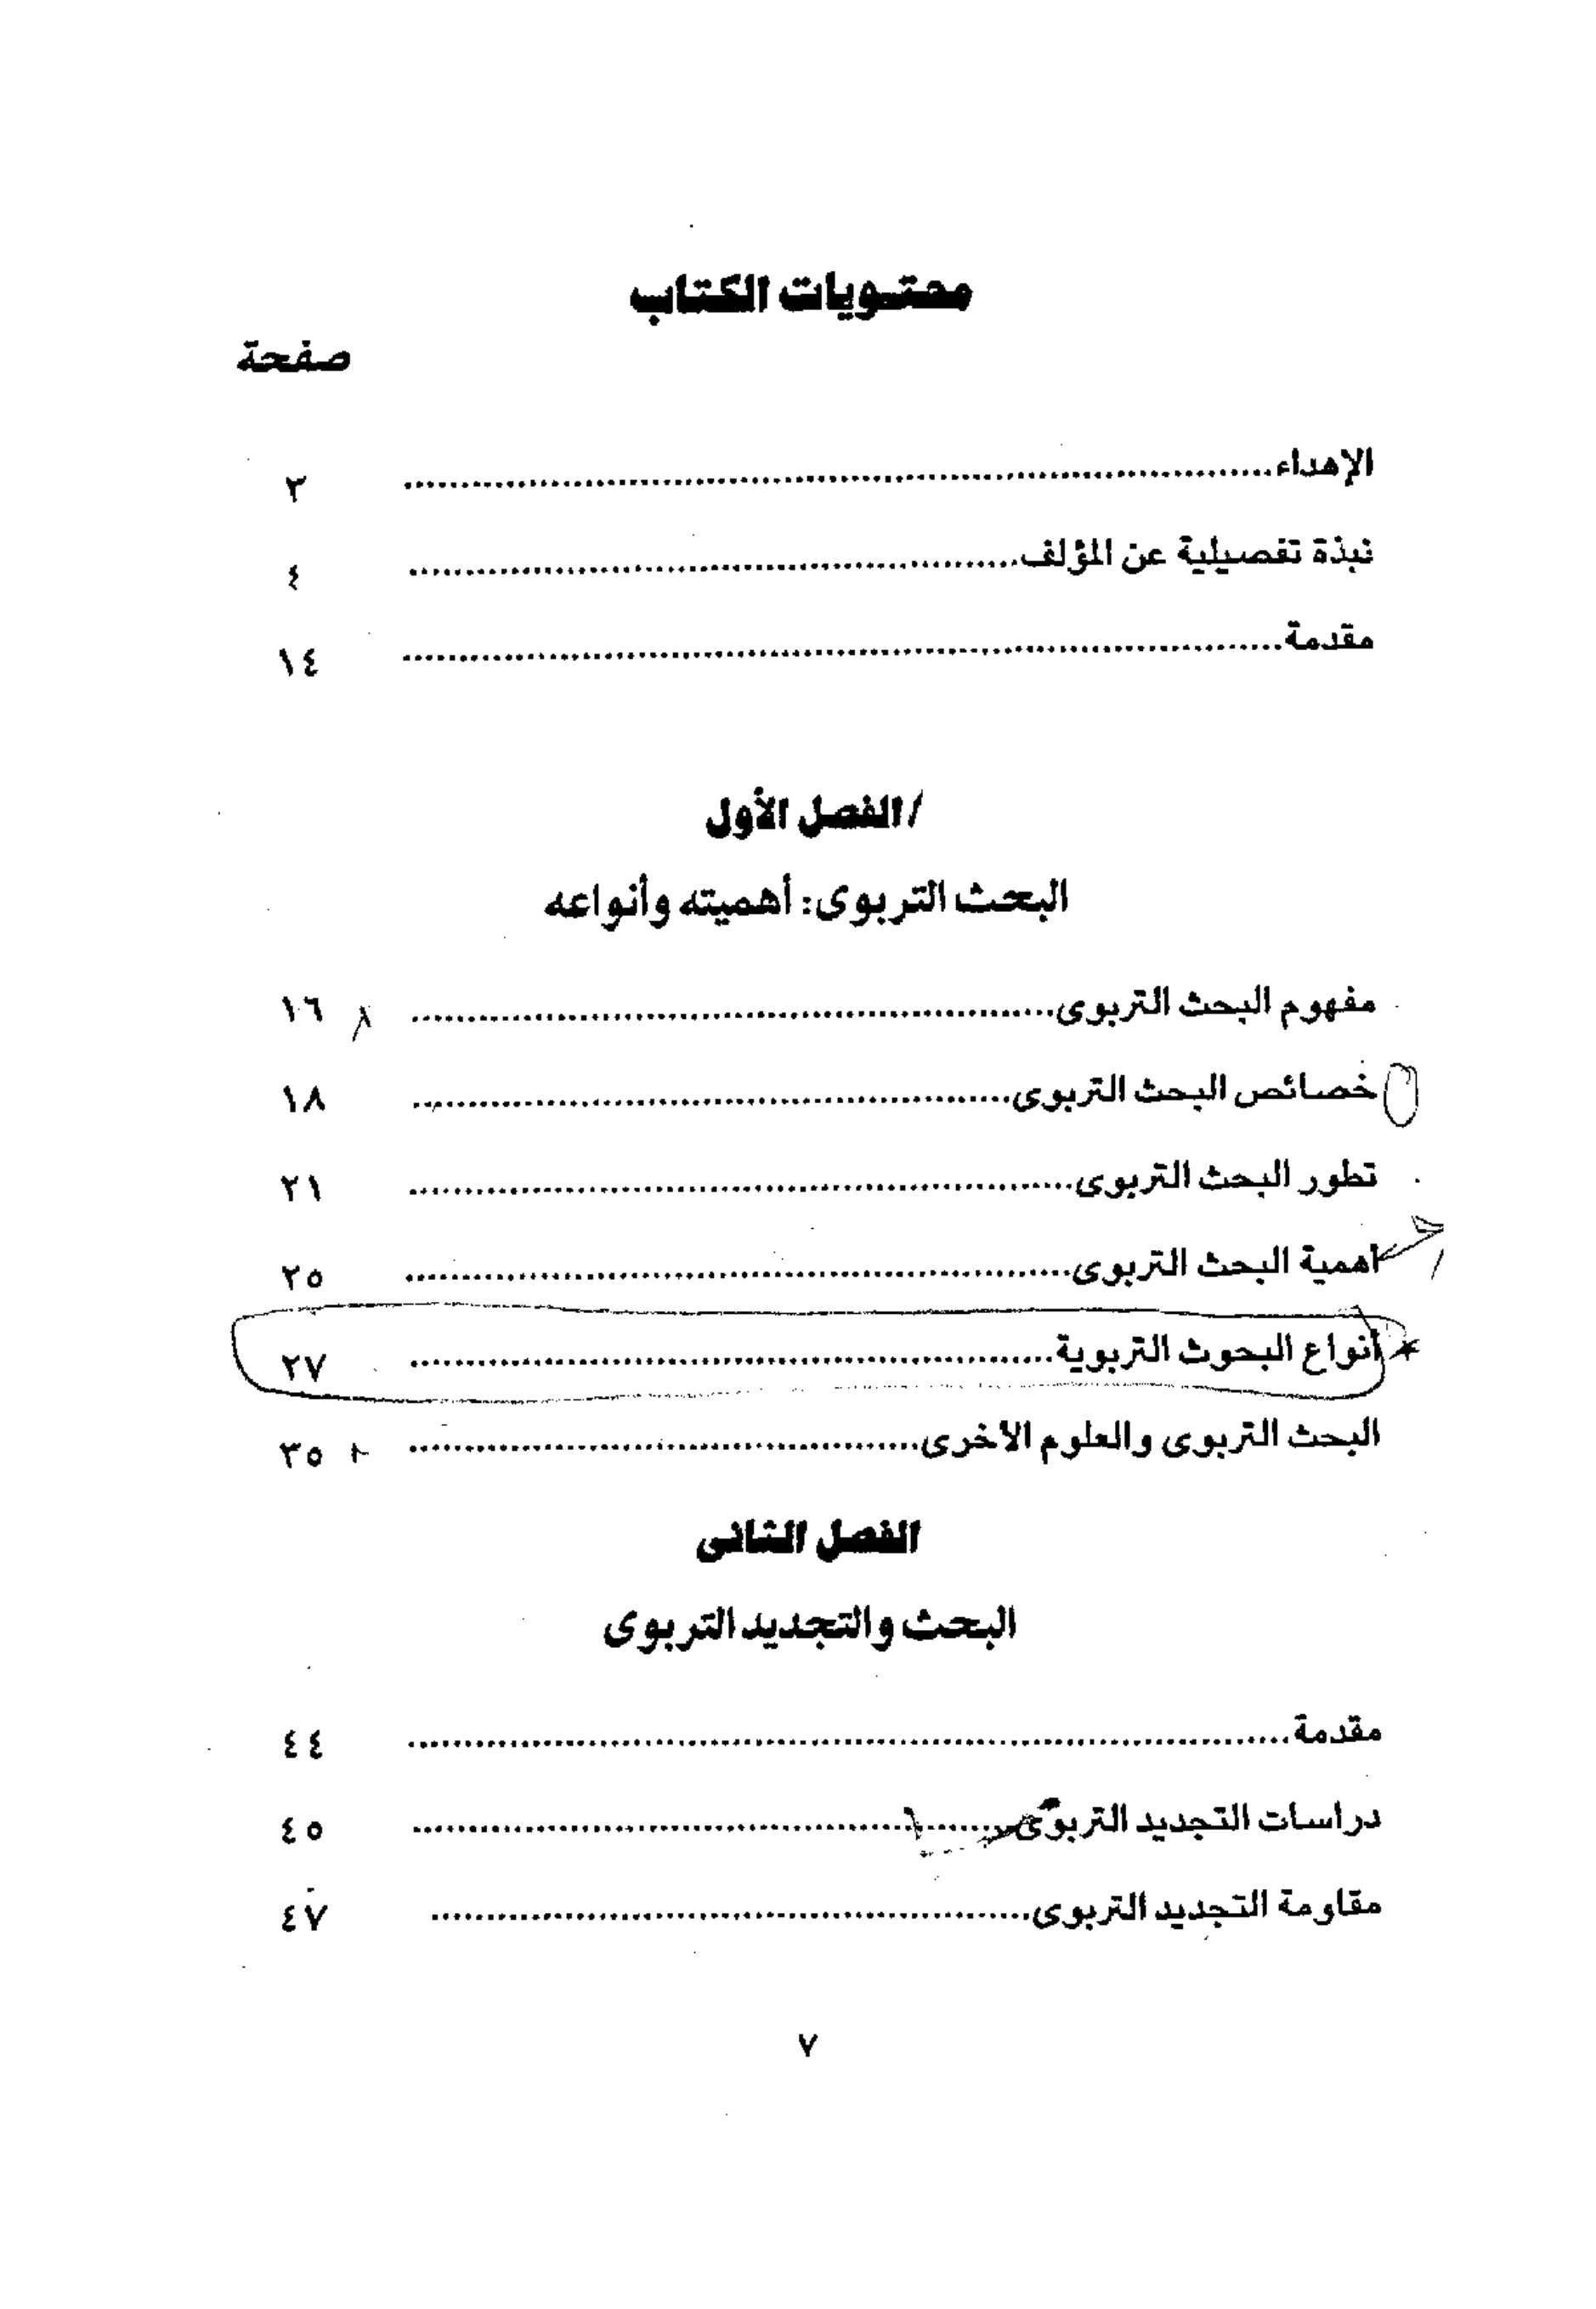 محتويات الكتاب
صفحة
الإهداء........................................ ٣
نبذة تفصيلية عن المؤلف........................................ ٤
مقدمة........................................ ١٤
الفصل الأول
البحث التربوى: أهميته وأنواعه
مفهوم البحث التربوى........................................ ١٦
خصائص البحث التربوى........................................ ١٨
تطور البحث التربوى........................................ ٢١
أهمية البحث التربوى........................................ ٢٥
أنواع البحوث التربوية........................................ ٢٧
البحث التربوى والعلوم الأخرى........................................ ٣٥
الفصل الثانى
البحث والتجديد التربوى
مقدمة........................................ ٤٤
دراسات التجديد التربوى........................................ ٤٥
مقاومة التجديد التربوى........................................ ٤٧
٧